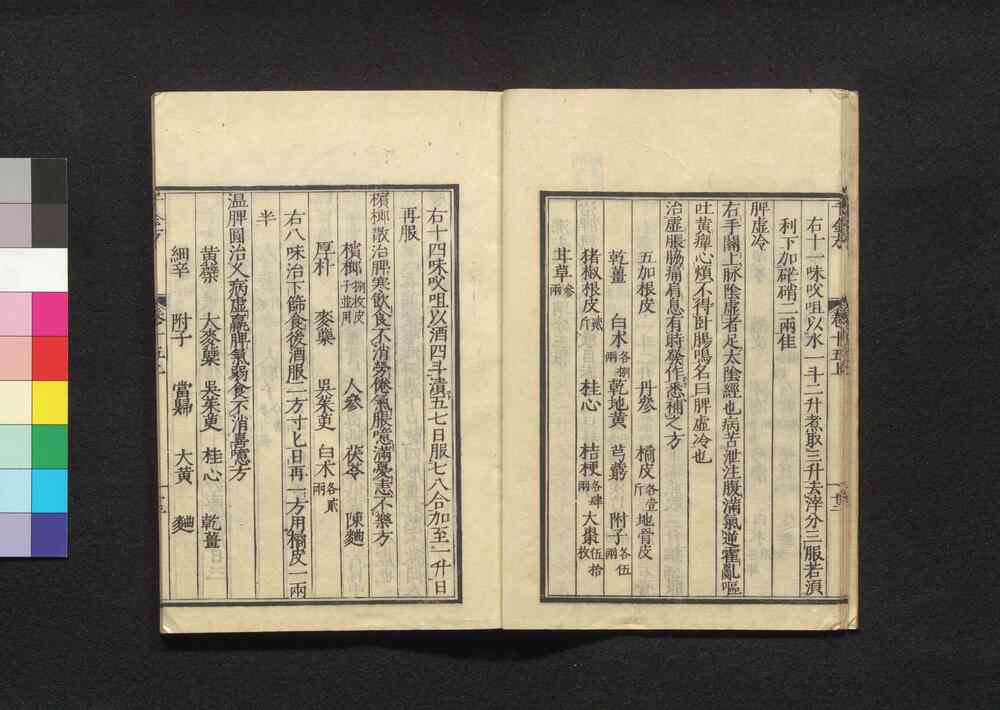 右十一味㕮咀以水一斗二升煮取三升去滓分三服若須
利下加硭硝二兩佳
脾虛冷
右手關上脉陰虛者足太陰經也病苦泄注腹滿氣逆霍亂嘔
吐黃癉心煩不得卧腸鳴名曰脾虛冷也
治虛脹脇痛肩息有時發作悉補之方
五加根皮 丹參 橘皮各壹斤 地骨皮
乾薑 白朮各捌兩 乾地黃 芎藭 附子各伍兩
猪椒根皮貳斤 桂心 桔梗各肆兩 大棗伍拾枚
甘草參兩
右十四味㕮咀以酒四斗漬五七日服七八合加至一升日
再服
檳榔散治脾寒飲食不消勞倦氣脹噫滿憂恚不樂方
檳榔捌枚皮子並用 人參 茯苓 陳麯
厚朴 麥櫱 吳茱萸 白朮各貳兩
右八味治下篩食後酒服二方寸匕日再一方用橘皮一兩
半
温脾圓治久病虛羸脾氣弱食不消喜噫方
黃蘗 大麥櫱 吳茱萸 桂心 乾薑
細辛 附子 當歸 大黃 麯